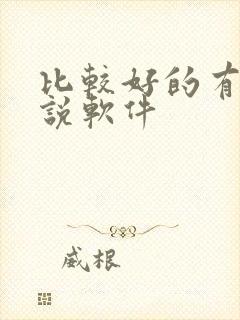 比較好的有
說軟件
威根